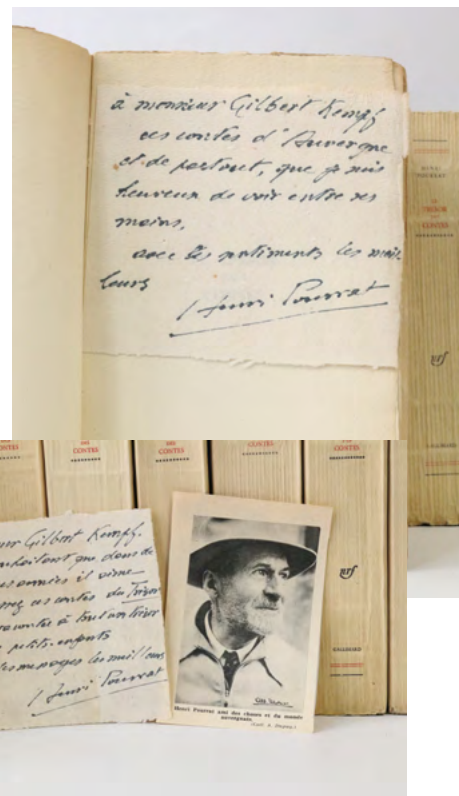 à monsieur Gilbert Kempf
ces contes d'Auvergne
et de partout, que je suis
heureux de voir entre ses
mains,
avec les sentiments les meil-
leurs
Henri Pourrat
HENRI
POURRAT
LE
TRÉSOR
DES
CONTES
nrf
GALLIMARD
DES
CONTES
CONTES
DES
CONTES
CONTES
DES
CONTES
nrf
GALLIMARD
ur Gilbert Kempf.
uhaitant que dans de
années il aime
ces contes du Trésor
raconter à tout un trésor
petits-enfants
messages les meilleurs
Henri Pourrat
Henri Pourrat ami des choses et du monde
auvergnats.